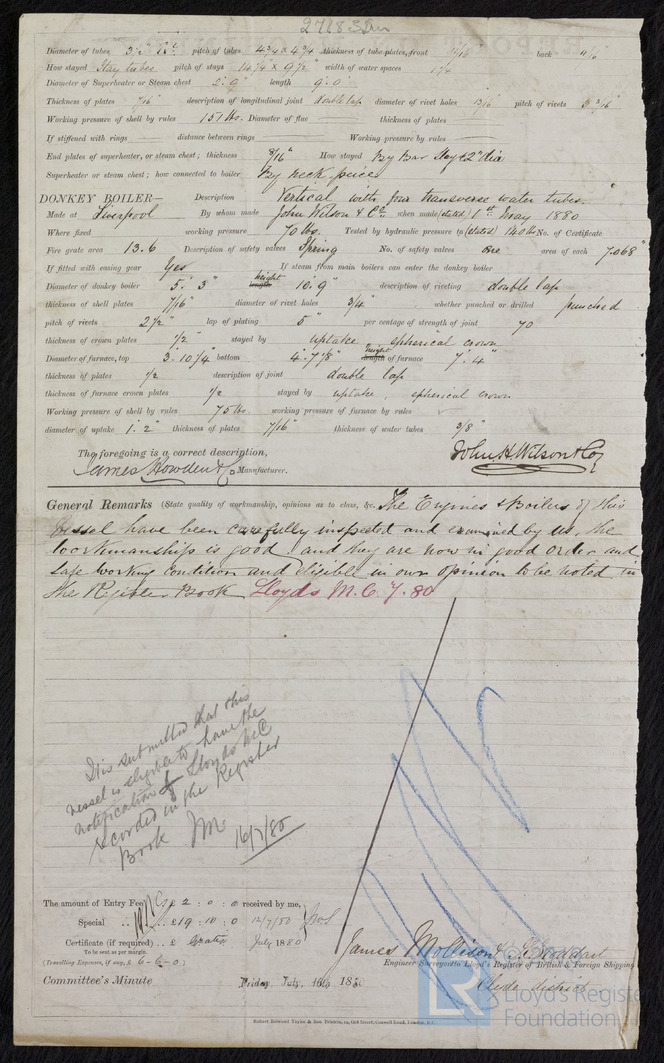 27183 Iron
Diameter of tubes 3½" Ext. pitch of tubes 4¾ x 4¾ thickness of tube plates, front 11/16 back 11/16
How stayed Stay tubes pitch of stays 14¼ x 9½" width of water spaces 1¼
Diameter of Superheater or Steam chest 2'. 9" length 9'. 0"
Thickness of plates 7/16" description of longitudinal joint double lap diameter of rivet holes 13/16 pitch of rivets 3 3/16"
Working pressure of shell by rules 151 lbs. Diameter of flue thickness of plates
If stiffened with rings distance between rings Working pressure by rules
End plates of superheater, or steam chest; thickness 8/16" How stayed By Bar Stays 2" dia
Superheater or steam chest; how connected to boiler By neck piece
DONKEY BOILER— Description Vertical with four transverse water tubes.
Made at Liverpool By whom made John Wilson & Co. when made (dated) 1st May 1880
Where fixed working pressure 70 lbs. Tested by hydraulic pressure to (dated) 140 lbs No. of Certificate
Fire grate area 13.6 Description of safety valves Spring No. of safety valves one area of each 7.068"
If fitted with easing gear Yes If steam from main boilers can enter the donkey boiler
Diameter of donkey boiler 5'. 3" length height 10'. 9" description of riveting double lap
thickness of shell plates 7/16" diameter of rivet holes 3/4" whether punched or drilled punched
pitch of rivets 2½" lap of plating 5" per centage of strength of joint 70
thickness of crown plates ½" stayed by uptake spherical crown
Diameter of furnace, top 3'. 10¼" bottom 4'. 7⅛" length height of furnace 7'. 4"
thickness of plates ½ description of joint double lap
thickness of furnace crown plates ½ stayed by uptake, spherical crown
Working pressure of shell by rules 75 lbs. working pressure of furnace by rules
diameter of uptake 1'. 2" thickness of plates 7/16" thickness of water tubes 3/8"
The foregoing is a correct description,
James Howden & Co Manufacturer. John H. Wilson & Co
General Remarks (State quality of workmanship, opinions as to class, &c. The Engines & Boilers of this
Vessel have been carefully inspected and examined by us, the
workmanship is good and they are now in good order and
safe working condition and eligible in our opinion to be noted in
the Register Book Lloyds M.C. 7.80
It is submitted that this
vessel is eligible to have the
notification of Lloyds MC
recorded in the Register
Book JM 16/7/80
The amount of Entry Fee .. £ 2 : 0 : 0 received by me,
Special .. £ 19 : 10 : 0 12/7/80
Certificate (if required) .. £ Gratis July 1880
To be sent as per margin.
(Travelling Expenses, if any, £ 6-6-0)
James Mollison & G. Stoddart
Engineer Surveyor to Lloyd's Register of British & Foreign Shipping
Clyde District
Committee's Minute Friday July 16th 1880
Robert Edmund Taylor & Son Printers, 19, Old Street, Goswell Road, London, E.C.
Lloyd's Register
Foundation